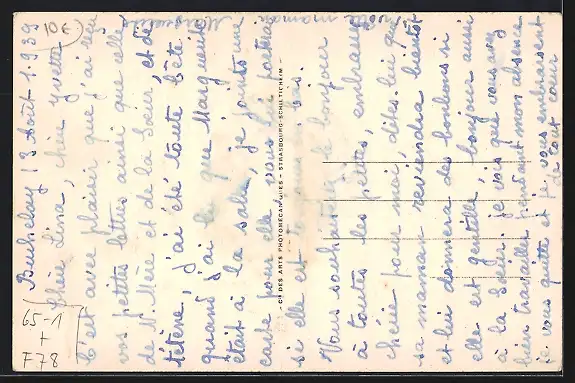 10€
Buchelay 13 Août 1939
Chère Line, chère Yvette
C'est avec plaisir que j'ai reçu
vos petites lettres ainsi que celle
de N. Mère et de la Sœur, et de
j'ai été toute bête
quand j'ai lu que Marguerite
était à la salle, je joins une
carte pour elle, vous lui porterez
si elle est
Vous souhaiterez le bonjour
à toutes les petites, embrassez
chérie pour moi, dites-lui que
sa maman reviendra bientôt
et lui donnera des bonbons si
elle est gentille, bonjour aussi
à la Sœur. je vois que vous avez
bien travaillé pendant mon absence
je vous quitte et je vous embrassent
de tout cœur
votre maman
Marguerite
- Cie DES ARTS PHOTOMÉCANIQUES - STRASBOURG-SCHILTIGHEIM -
65-1
+
F78